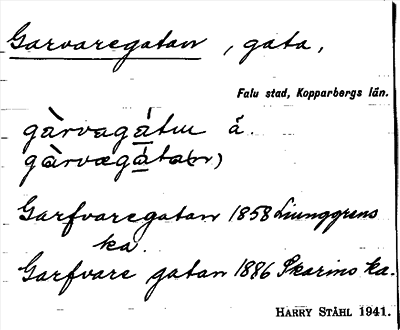 Garvaregatan, gata,
Falu stad, Kopparbergs län.
gàrvagátu å.
gàrvægáta(n)
Garfvaregatan 1858 Liunggrens
ka.
Garfvare gatan 1886 Skarins ka.
HARRY STÅHL 1941.